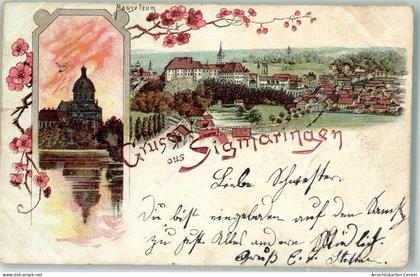 Mausoleum
Gruss
aus
Sigmaringen
Liebe Schwester.
Du bist eingeladen auf den
zu Alles andere Mündlich.
Gruß
www.delcampe.net
Ansichtskarten-Center.de